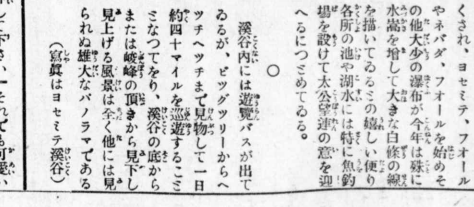 くされ ヨセミテ、フオール
やネバダ、フオールを始めそ
の他大小の瀑布が今年は殊に
水嵩を増して大きな白條の線
を描いてゐるとの嬉しい便り
各所の池や湖水には特に魚釣
場を設けて太公望連の意を迎
へるにつとめてゐる。
○
溪谷内には遊覽バスが出て
ゐるが、ビツグツリーからヘ
ツチヘツチまで見物して一日
約四十マイルを巡遊すること
となつてをり、溪谷の底から
または峻峰の頂きから見下し
見上げる風景は全く他には見
られぬ雄大なパノラマである
(寫眞はヨセミテ溪谷)